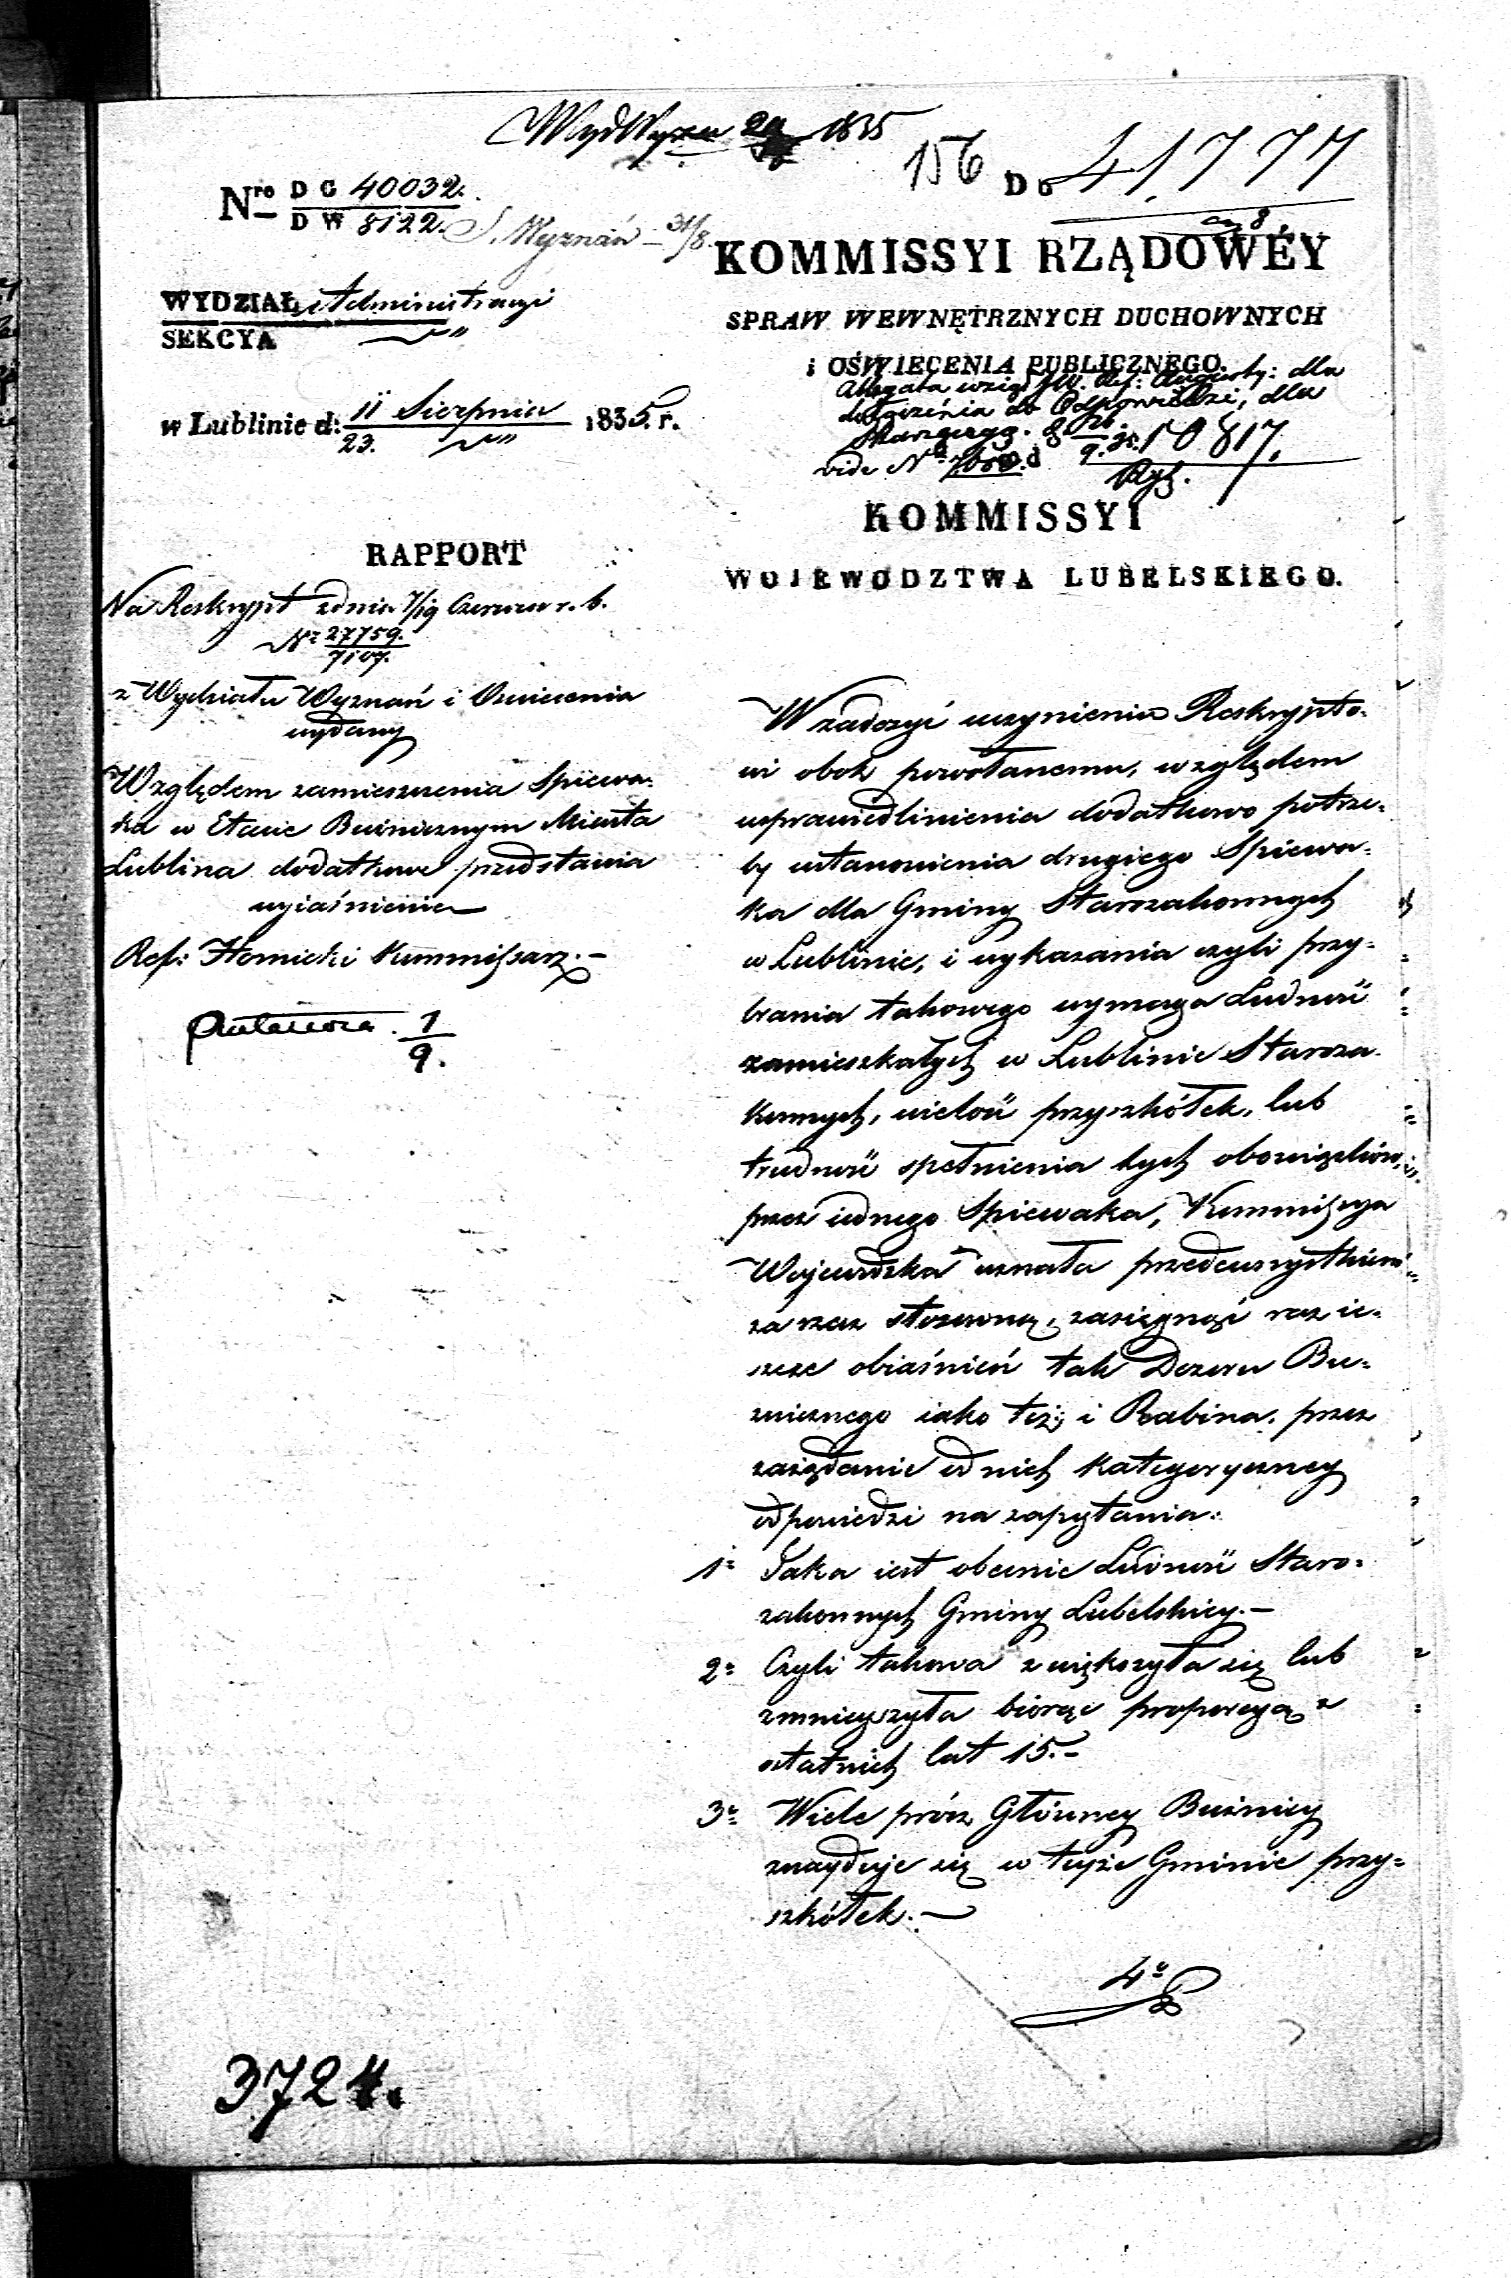 1835
156
Do 41777
Nro D G 40032.
D W 8122.
S. Wyznań 31/8
KOMMISSYI RZĄDOWÉY
WYDZIAŁ Administracyi
SEKCYA
SPRAW WEWNĘTRZNYCH DUCHOWNYCH
i OŚWIECENIA PUBLICZNEGO.
dołączenia do Odpowiedzi, dla
w Lublinie d: 11/23. Sierpnia 1835. r.
10817.
vide No
KOMMISSYI
WOJEWODZTWA LUBELSKIEGO.
RAPPORT
Na Reskrypt z dnia 7/19 Czerwca r. b.
Nr 27759.
7107.
z Wydziału Wyznań i Oswiecenia
wydany
Względem zamieszczenia Spiewa-
ka w Etacie Bużnicznym Miasta
Lublina dodatkowe przedstawia
wyiaśnienie
Ref: Kommissarz. –
1/9.
W zadosyć uczynieniu Reskrypto-
wi obok powołanemu, względem
usprawiedliwienia dodatkowo potrze-
by ustanowienia drugiego Spiewa-
ka dla Gminy Starozakonnych
w Lublinie, i wykazania czyli przy-
brania takowego wymaga Ludność
zamieszkałych w Lublinie Staroza-
konnych, wielość przyszkółek, lub
trudność spełnienia tych obowiązków
przez iednego Spiewaka, Kommissya
Wojewódzka uznała przedewszystkiem
za rzecz stosowną, zasięgnąć raz ie-
szcze obiaśnień tak Dozoru Bu-
żnicznego iako też i Rabina, przez
zażądanie od nich kategoryczney
odpowiedzi na zapytania:
1o Jaka iest obecnie Ludność Staro-
zakonnych Gminy Lubelskiey. –
2o Czyli takowa zwiększyła się lub
zmnieyszyła biorąc proporcyą z
ostatnich lat 15. –
3o Wiele prócz Główney Bużnicy
znayduje się w teyże Gminie przy-
szkółek. –
4o
3724.